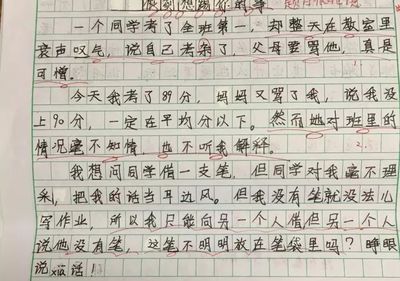 一个同学考了全班第一,却整天在教室里
哀声叹气,说自己考杂了,父母要骂他,真是
可憎。
今天我考了89分,妈妈又骂了我,说我没
上90分,一定在平均分以下。然而她对班里的
情况毫不知情,也不听我解释。
我想问同学借一支笔,但同学对我毫不理
采,把我的话当耳边风。但我没有笔就没法儿
写作业,所以我只能向另一个人借但另一个人
说他没有笔,这笔不明明放在笔袋里吗?睁眼
说xiā话!